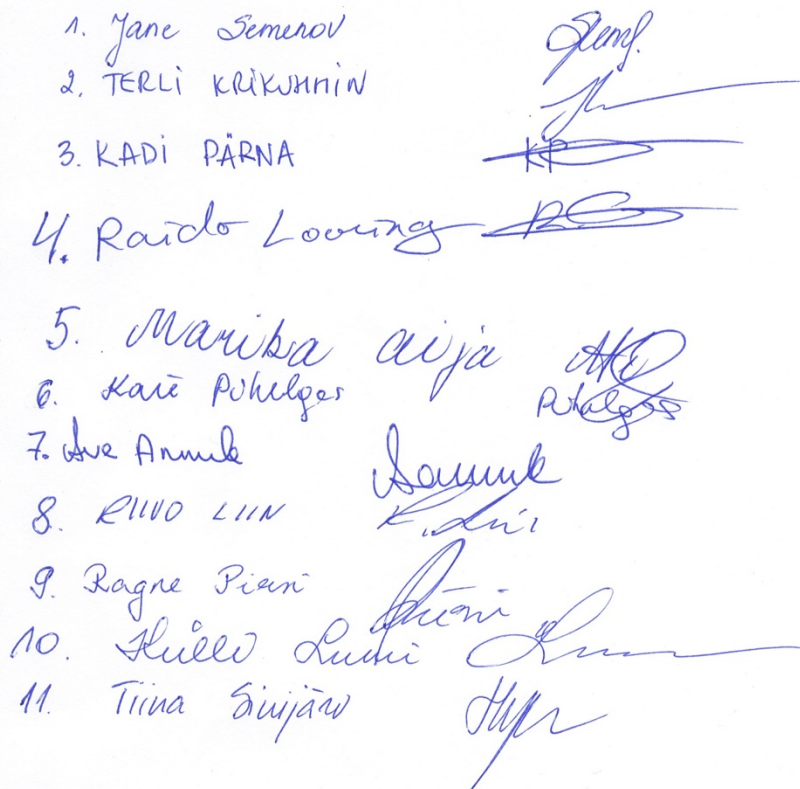 1. Jane Semenov
2. TERLI KRIKUHHIN
3. KADI PÄRNA KP
4. Raido Looring
5. Marika Aija
6. Kare Pühelgas Pühalgas
7. Ave Annuk Aannuk
8. RIIVO LIIN R. Liin
9. Ragne Piani
10. Hüllo Lumi
11. Tiina Sinijärv